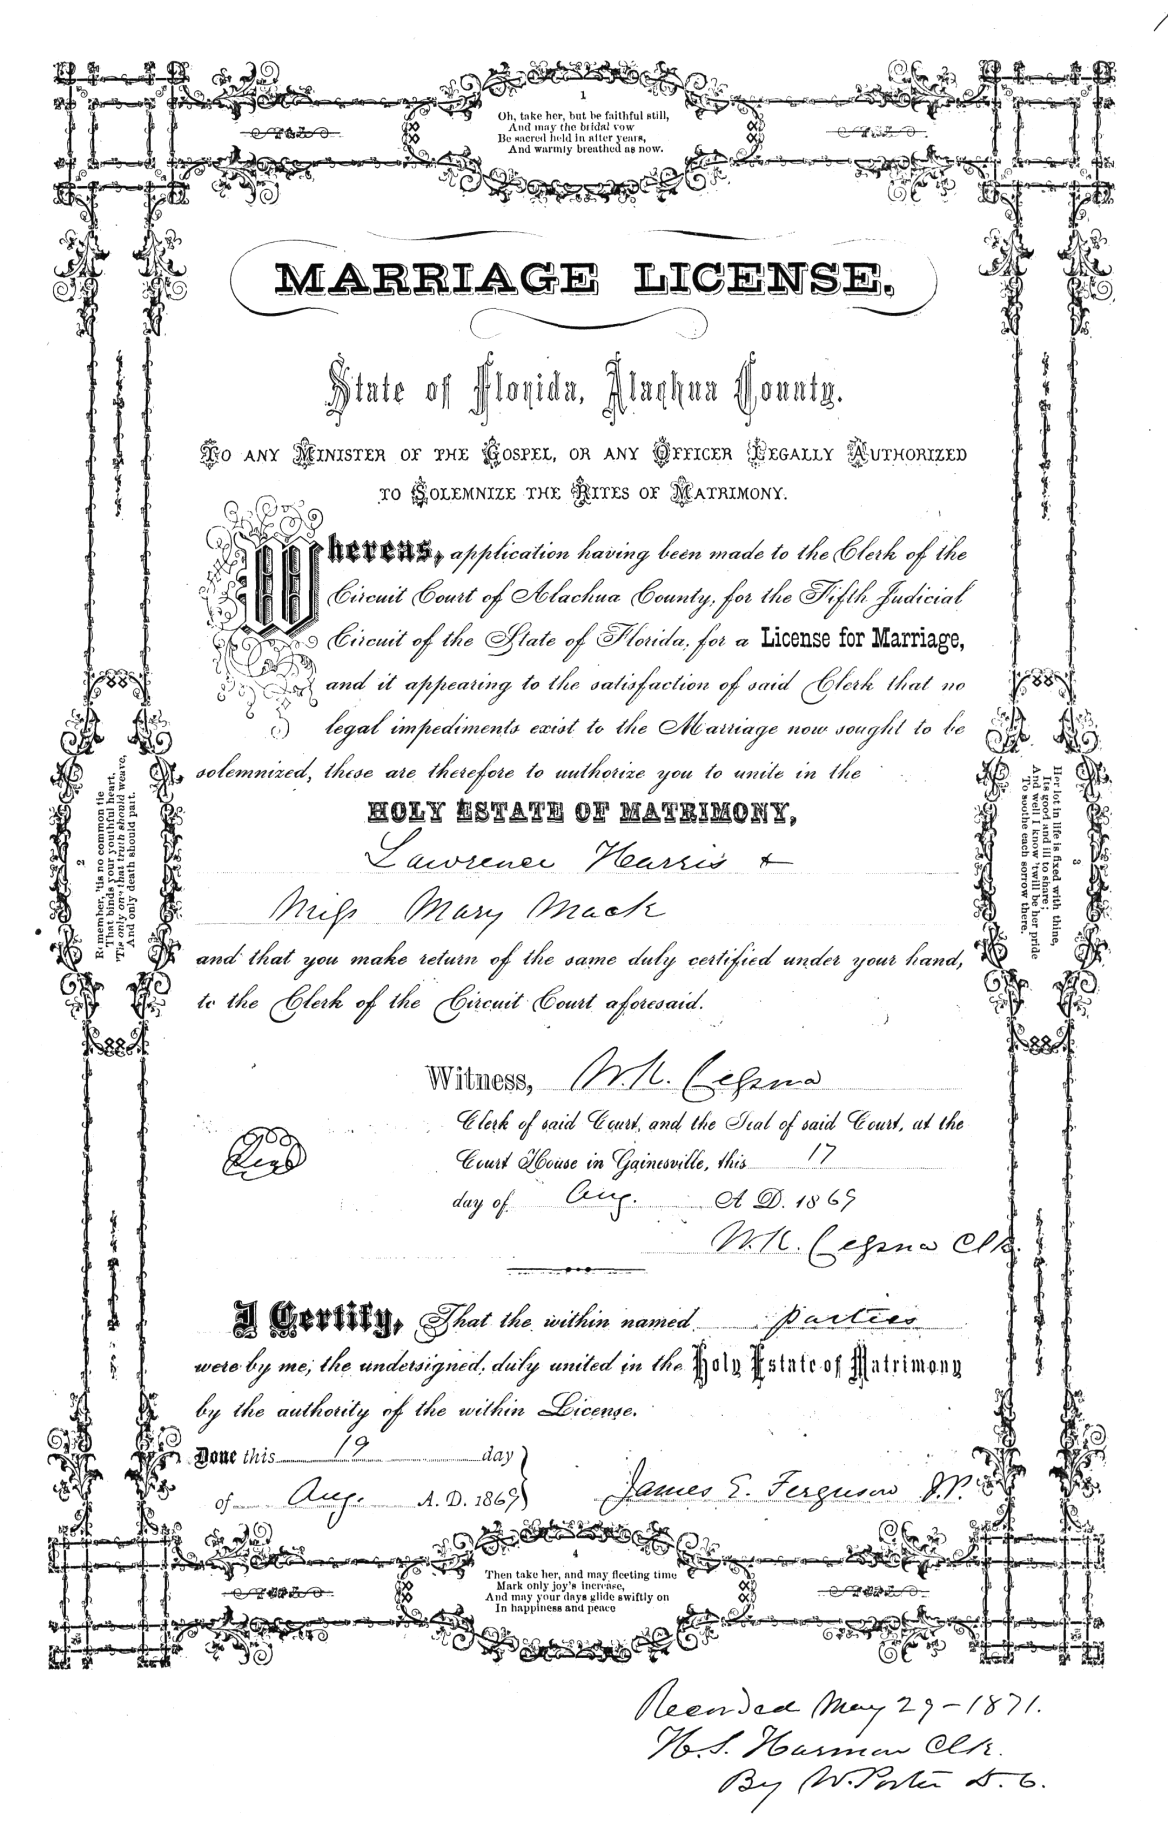 1
Oh, take her, but be faithful still,
And may the bridal vow
Be sacred held in after years,
And warmly breathed as now.
MARRIAGE LICENSE.
State of Florida, Alachua County.
TO ANY MINISTER OF THE GOSPEL, OR ANY OFFICER LEGALLY AUTHORIZED
TO SOLEMNIZE THE RITES OF MATRIMONY.
Whereas, application having been made to the Clerk of the
Circuit Court of Alachua County, for the Fifth Judicial
Circuit of the State of Florida, for a License for Marriage,
and it appearing to the satisfaction of said Clerk that no
legal impediments exist to the Marriage now sought to be
solemnized, these are therefore to authorize you to unite in the
HOLY ESTATE OF MATRIMONY,
Lawrence Harris &
Miss Mary Mack
and that you make return of the same duly certified under your hand,
to the Clerk of the Circuit Court aforesaid.
2
Remember, 'tis no common tie
That binds your youthful heart,
'Tis only one that truth should weave,
And only death should part.
3
Her lot in life is fixed with thine,
Its good and ill to share;
And well I know 'twill be her pride
To soothe each sorrow there.
Witness, W. K. Cessna
Clerk of said Court, and the Seal of said Court, at the
Court House in Gainesville, this 17
Seal
day of Aug. A D. 1869
W. K. Cessna Clk.
I Certify, That the within named parties
were by me, the undersigned, duly united in the Holy Estate of Matrimony
by the authority of the within License.
Done this 19 day
of Aug. A. D. 1869
James E. Ferguson J.P.
4
Then take her, and may fleeting time
Mark only joy's increase,
And may your days glide swiftly on
In happiness and peace
Recorded May 29-1871.
H. S. Harmon Clk.
By W. Porter D. C.